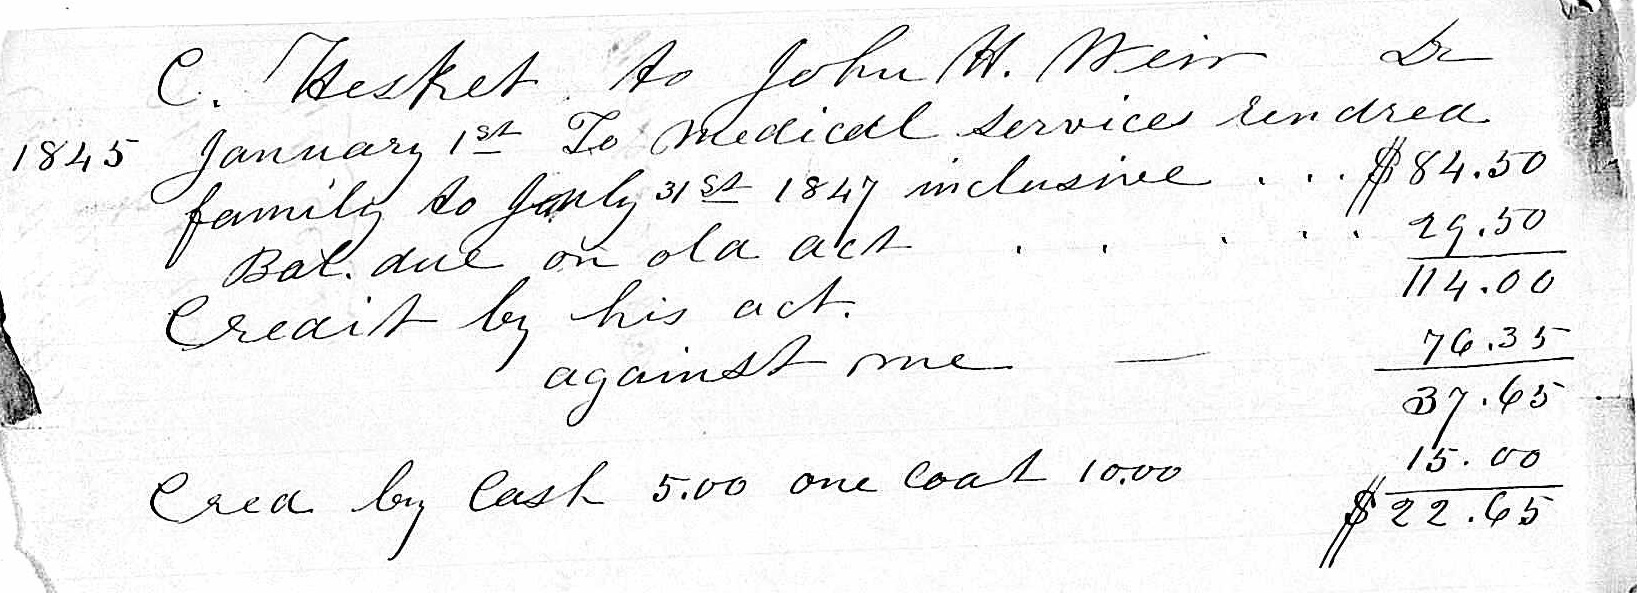 C. Hesket to John H. Weir Dr
1845 January 1st To Medical services rendred
family to July 31st 1847 inclusive . . . $84.50
Bal. due on old act . . . . . 29.50
114.00
Credit by his act.
against me — 76.35
37.65
15.00
Cred by Cash 5.00 one Coat 10.00
$22.65